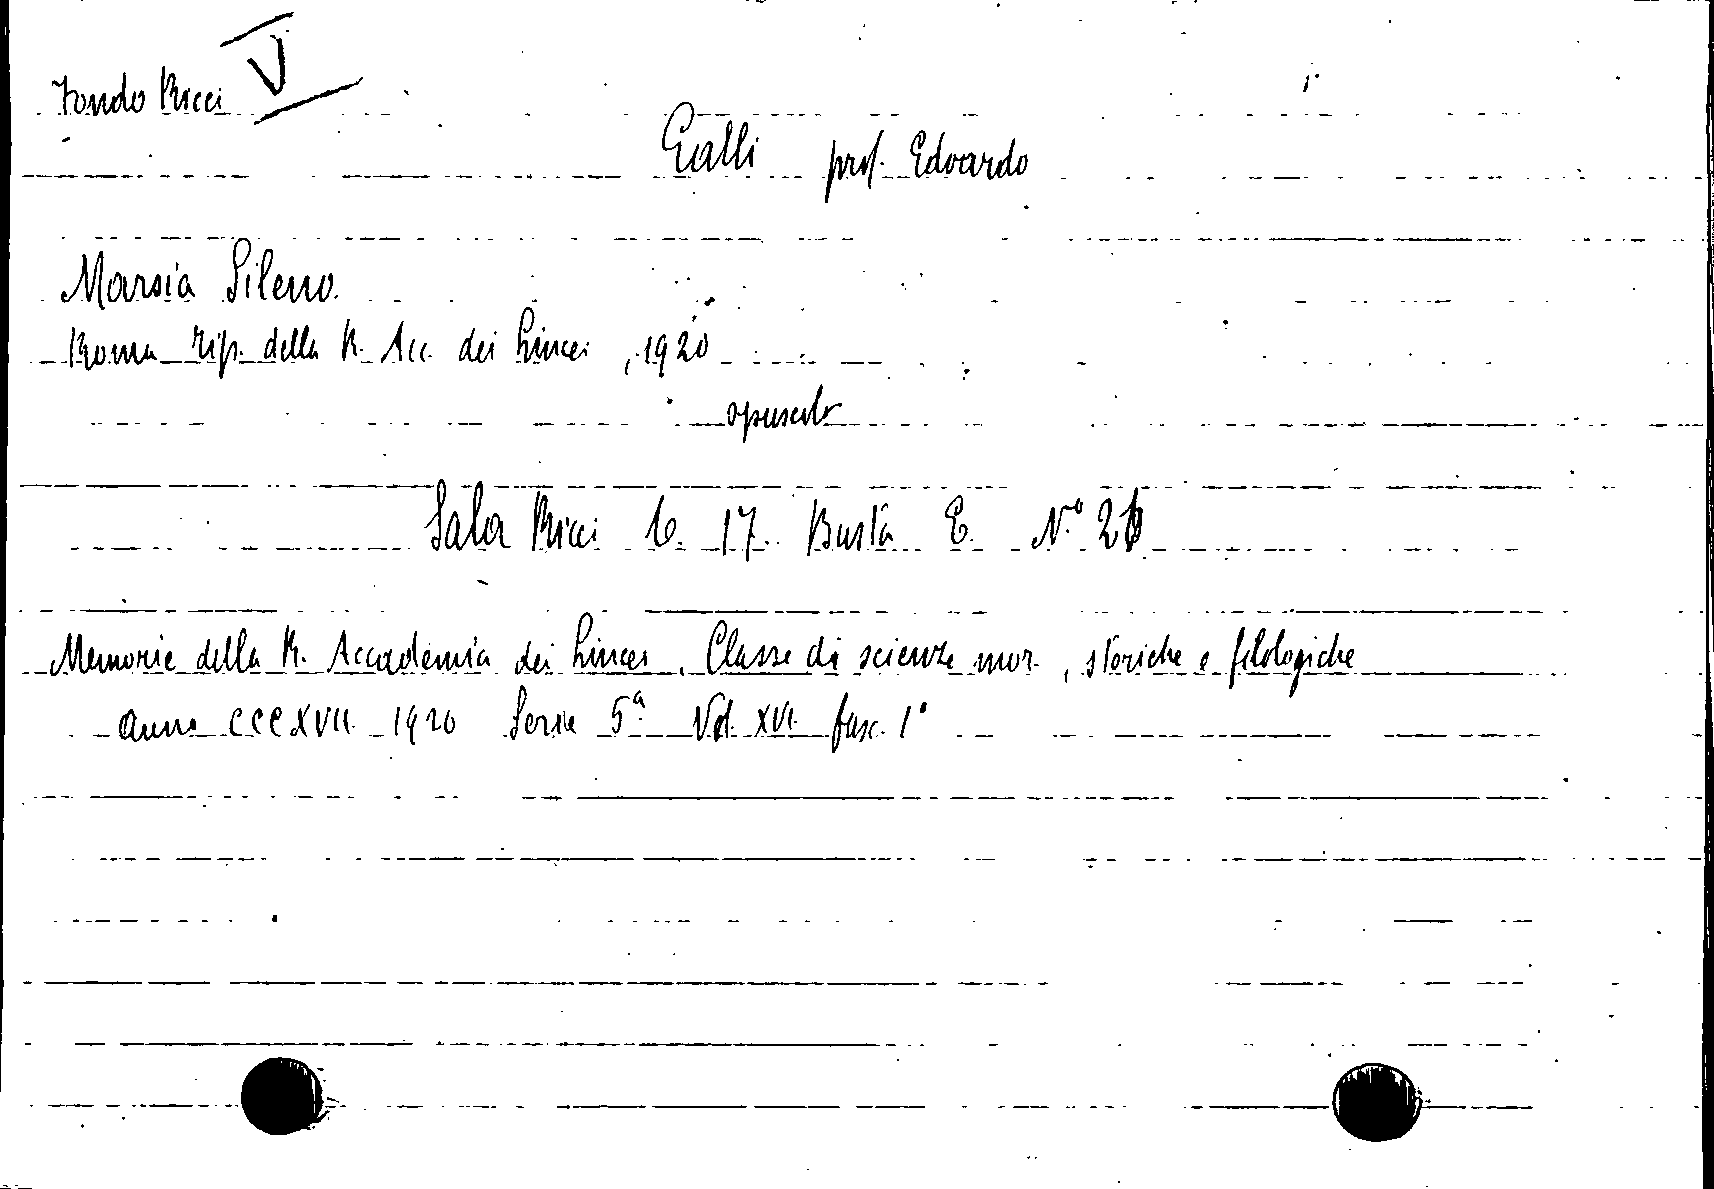 Fondo Ricci V
Galli prof. Edoardo
Marsia Sileno.
Roma Tip. della R. Acc. dei Lincei, 1920
opuscolo
Sala Ricci C. 17. Busta E. N.º
Memorie della R. Accademia dei Lincei. Classe di scienze mor., storiche e filologiche
anno CCCXVII. 1920 Serie 5ª. Vol. XVI. fasc. 1°